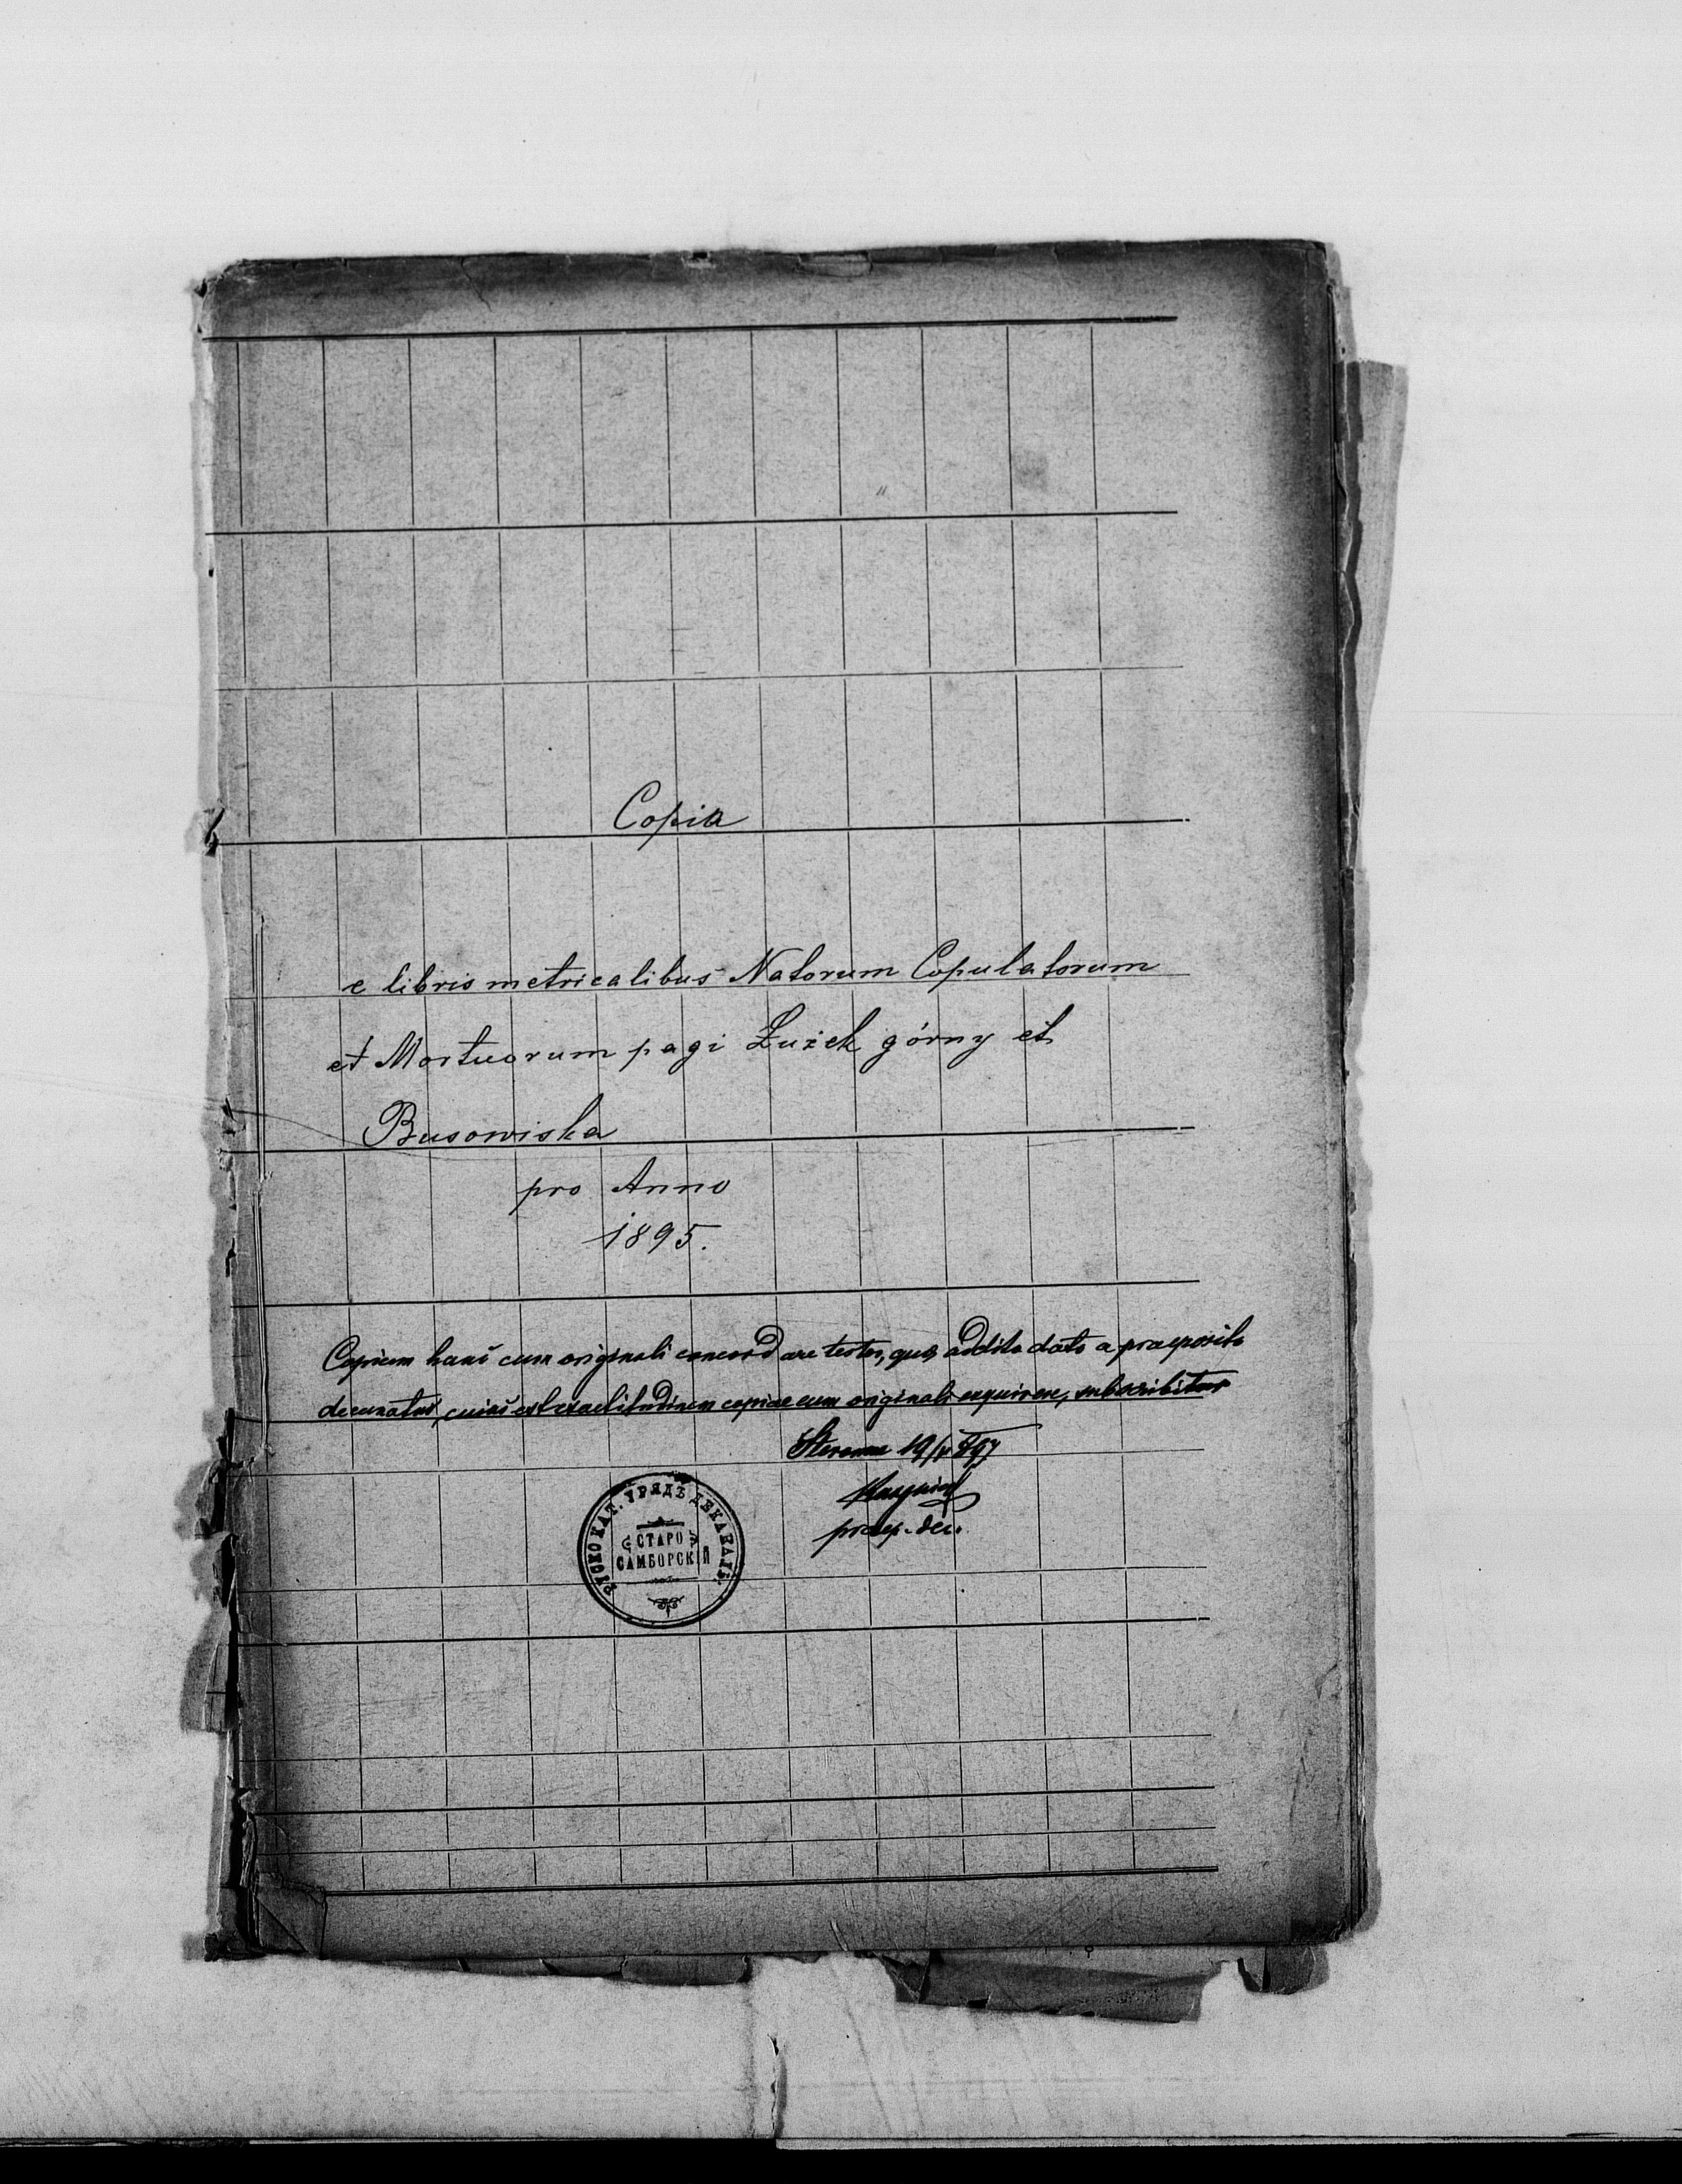 Copia
e libris metricalibus Natorum Copulatorum
et Mortuorum pagi Łużek górny et
Busowiska
pro Anno
1895.
Copiam hanc cum originali concordare testor, quo addito dato a praeposito
decanatus, cuius est exactitudinem copiae cum originali exquirere, subscribitur
19/ 897
praep. dec.
РУСКО КАТ. УРЯДЪ ДЕКАНАЛЬ.
СТАРО
САМБОРСКІЙ